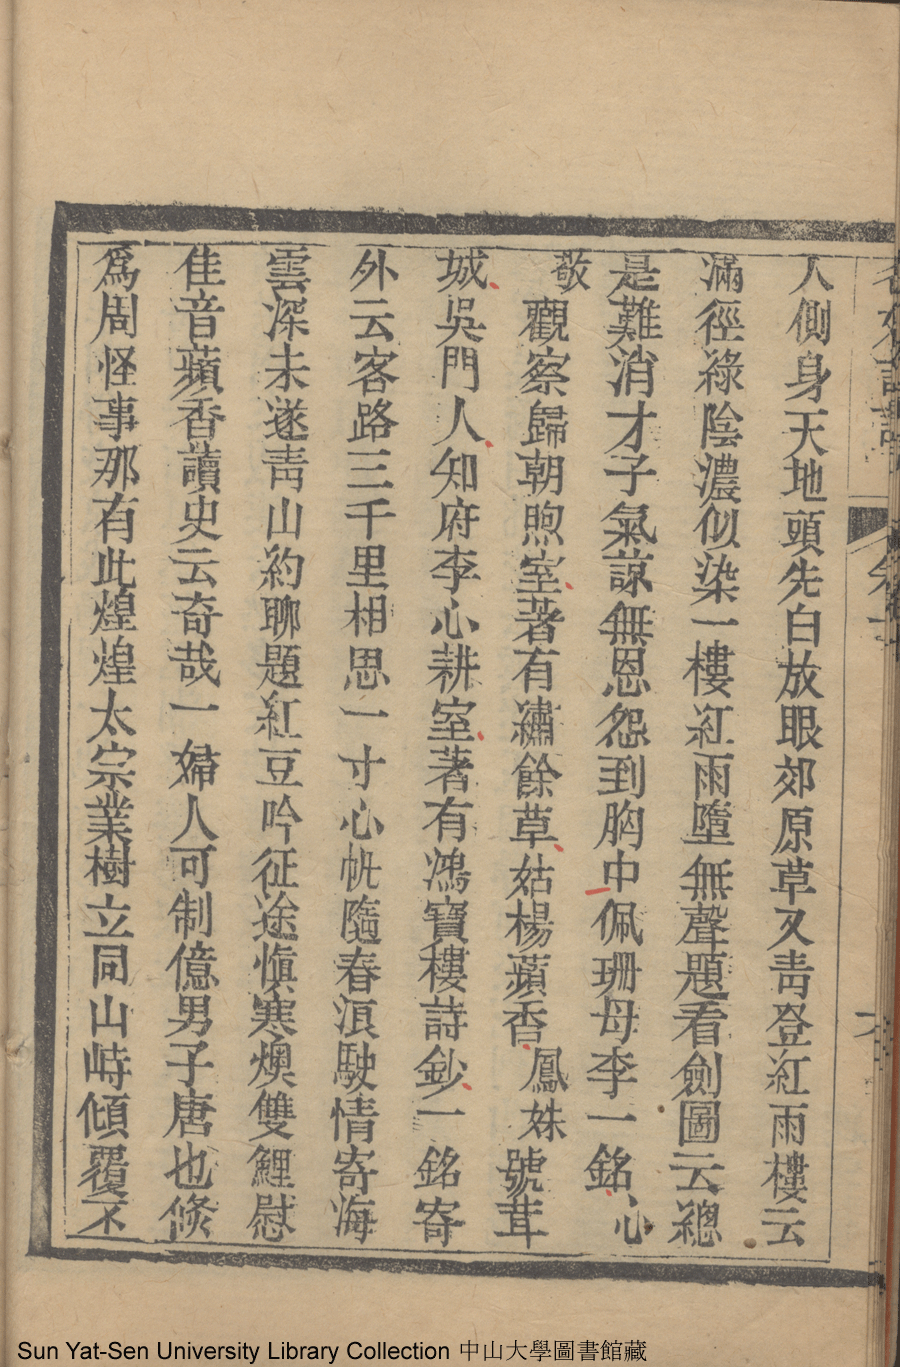 人側身天地頭先白放眼郊原草又青登紅雨樓云
滿徑綠陰濃似染一樓紅雨墮無聲題看劍圖云總
是難消才子氣諒無恩怨到胸中佩珊母李一銘心
敬觀察歸朝煦室著有繡餘草姑楊蘋香鳳姝號茸
城吳門人知府李心耕室著有鴻寶樓詩鈔一銘寄
外云客路三千里相思一寸心帆隨春浪駛情寄海
雲深未遂青山約聊題紅豆吟征途慎寒燠雙鯉慰
佳音蘋香讀史云奇哉一婦人可制億男子唐也倐
爲周怪事那有此煌煌太宗業樹立同山峙傾覆不
Sun Yat-Sen University Library Collection 中山大學圖書館藏